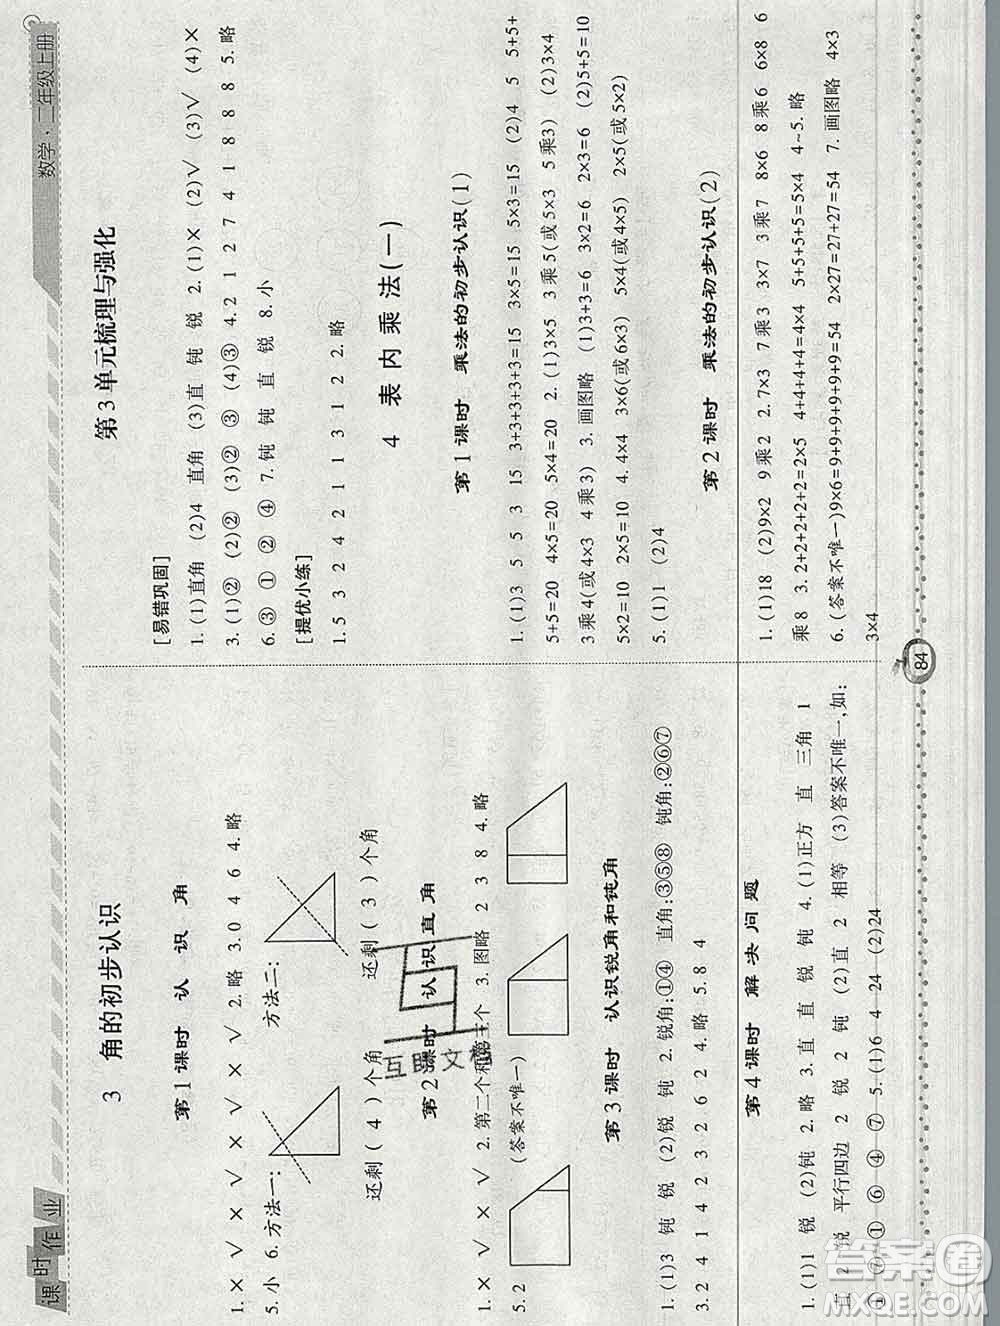 课时作业
数学·二年级上册
3 角的初步认识
第1课时 认识角
1.× √ × √ × √ × √ 2.略 3.0 4 6 4.略
5.小 6.方法一: 方法二:
还剩(4)个角 还剩(3)个角
第2课时 认识直角
1.× √ × √ 2.第二个和第三个 3.图略 2 3 8 4.略
5.2 (答案不唯一)
第3课时 认识锐角和钝角
1.(1)3 钝 锐 (2)锐 钝 2.锐角:①④ 直角:③⑤⑧ 钝角:②⑥⑦
3.2 4 1 4 2 3 2 6 2 4.略 5.8 4
第4课时 解决问题
1.(1)1 锐 (2)钝 2.略 3.直 直 锐 钝 4.(1)正方 直 三角 1
直 2 锐 平行四边 2 锐 2 钝 (2)直 2 相等 (3)答案不唯一,如:
① ⑦ ① ⑥ ④ ⑦ 5.(1)6 4 24 (2)24
第3单元梳理与强化
[易错巩固]
1.(1)直角 (2)4 直角 (3)直 钝 锐 2.(1)× (2)√ (3)√ (4)×
3.(1)② (2)② (3)② ③ (4)③ 4.2 1 2 7 4 1 8 8 8 5.略
6.③ ① ② ④ 7.钝 钝 直 锐 8.小
[提优小练]
1.5 3 2 4 2 1 1 3 1 2 2.略
4 表内乘法(一)
第1课时 乘法的初步认识(1)
1.(1)3 5 5 3 15 3+3+3+3+3=15 3×5=15 5×3=15 (2)4 5 5+5+
5+5=20 4×5=20 5×4=20 2.(1)3×5 3乘5(或5×3 5乘3) (2)3×4
3乘4(或4×3 4乘3) 3.画图略 (1)3+3=6 3×2=6 2×3=6 (2)5+5=10
5×2=10 2×5=10 4.4×4 3×6(或6×3) 5×4(或4×5) 2×5(或5×2)
5.(1)1 (2)4
第2课时 乘法的初步认识(2)
1.(1)18 (2)9×2 9乘2 2.7×3 7乘3 3×7 3乘7 8×6 8乘6 6×8 6
乘8 3.2+2+2+2+2=2×5 4+4+4+4=4×4 5+5+5+5=5×4 4~5.略
6.(答案不唯一)9×6=9+9+9+9+9+9=54 2×27=27+27=54 7.画图略 4×3
3×4
84
互助文库
答案圈
MXQE.COM